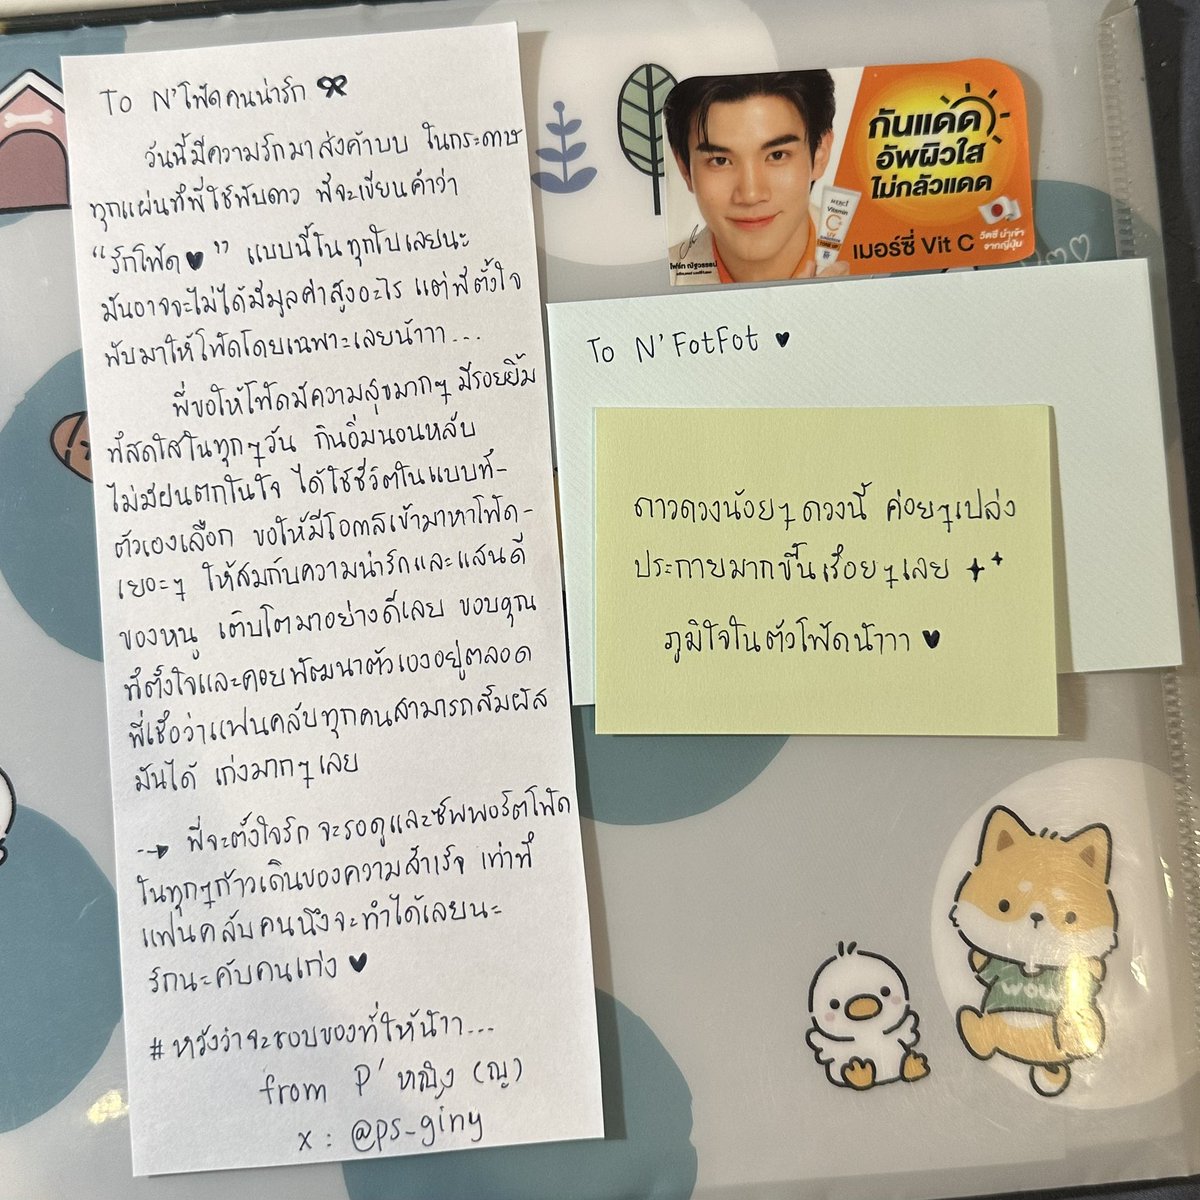 To N'โฟ้ดคนน่ารัก
วันนี้มีความรักมาส่งค้าบบ ในกระดาษ
ทุกแผ่นที่พี่ใช้พับดาว พี่จะเขียนคำว่า
"รักโฟ้ด♥" แบบนี้ในทุกใบเลยนะ
มันอาจจะไม่ได้มีมูลค่าสูงอะไร แต่พี่ตั้งใจ
พับมาให้โฟ้ดโดยเฉพาะเลยน้าาา...
พี่ขอให้โฟ้ดมีความสุขมากๆ มีรอยยิ้ม
ที่สดใสในทุกๆวัน กินอิ่มนอนหลับ
ไม่มีฝนตกในใจ ได้ใช้ชีวิตในแบบที่-
ตัวเองเลือก ขอให้มีโอกาสเข้ามาหาโฟ้ด-
เยอะๆ ให้สมกับความน่ารักและแสนดี
ของหนู เติบโตมาอย่างดีเลย ขอบคุณ
ที่ตั้งใจและคอยพัฒนาตัวเองอยู่ตลอด
พี่เชื่อว่าแฟนคลับทุกคนสามารถสัมผัส
มันได้ เก่งมากๆเลย
→ พี่จะตั้งใจรัก จะรอดูและซัพพอร์ตโฟ้ด
ในทุกๆก้าวเดินของความสำเร็จ เท่าที่
แฟนคลับคนนึงจะทำได้เลยนะ
รักนะคับคนเก่ง ♥
#หวังว่าจะชอบของที่ให้น้าา...
from P'หญิง (ญ)
x : @ps_giny
กันแดด
อัพผิวใส
ไม่กลัวแดด
MERCI
Vitamin
C
UV
วิตซี นำเข้า
จากญี่ปุ่น
เมอร์ซี่ Vit C
โฟร์ท ณัฐวรรธน์
To N'FotFot ♥
ดาวดวงน้อยๆ ดวงนี้ ค่อยๆเปล่ง
ประกายมากขึ้นเรื่อยๆเลย
ภูมิใจในตัวโฟ้ดน้าาา ♥
WOW